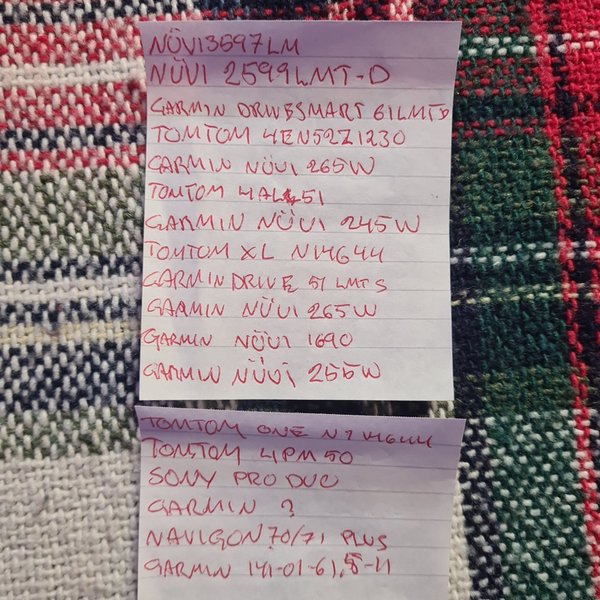 NÜVI3597LM
NÜVI 2599LMT-D
GARMIN DRIVESMART 61LMTS
TOMTOM 4EN52Z1230
GARMIN NÜVI 265W
TOMTOM 4AL51
GARMIN NÜVI 245W
TOMTOM XL N14644
GARMIN DRIVE 51 LMT S
GARMIN NÜVI 265W
GARMIN NÜVI 1690
GARMIN NÜVI 255W
TOMTOM ONE
TOMTOM 4PM50
SONY PRO DUO
GARMIN ?
NAVIGON 70/71 PLUS
GARMIN